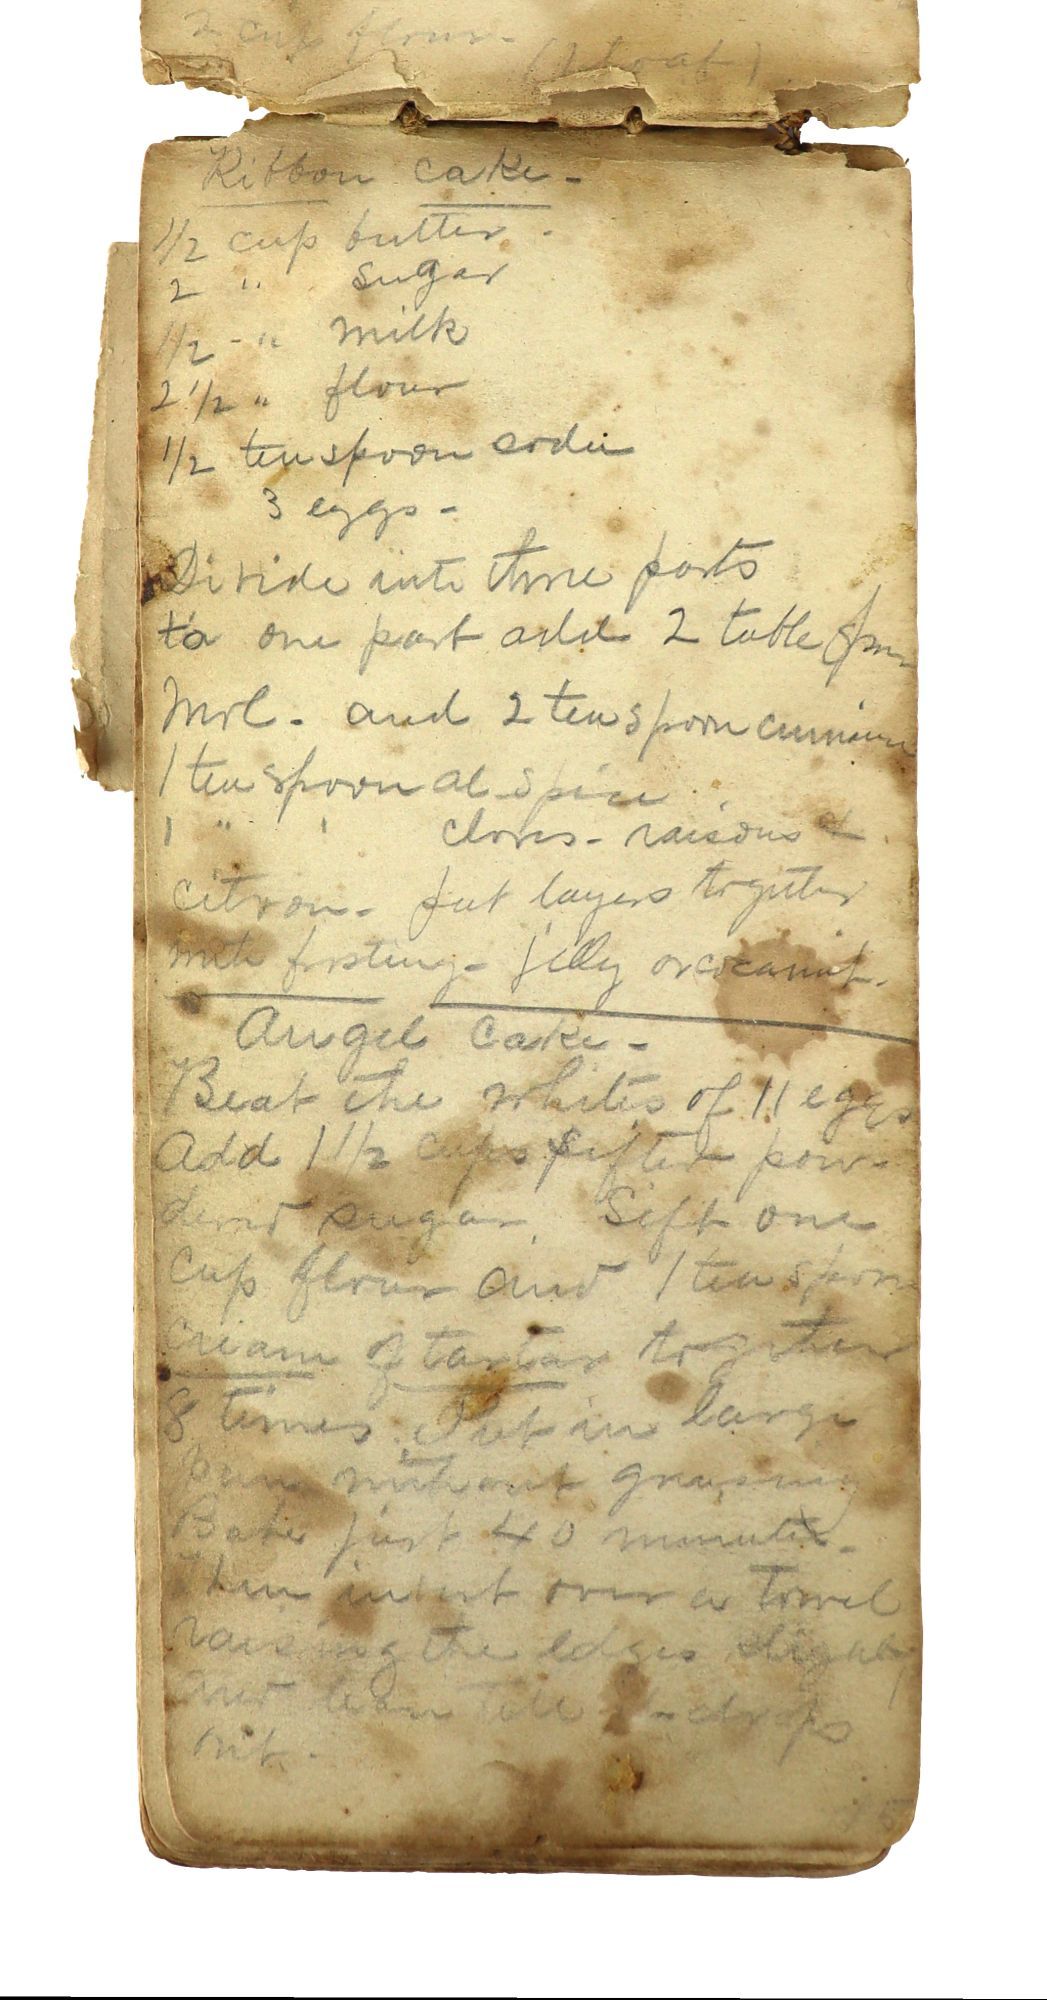 2 cup flour -
(1 loaf)
Ribbon cake -
1/2 cup butter -
2 " sugar
1/2 - " milk
2 1/2 " flour
1/2 teaspoon soda
3 eggs -
Divide into three parts
to one part add 2 table spoon
Mol. and 2 teaspoon cinnamon
1 teaspoon al-spice
1 " " cloves - raisons &
citron - put layers together
with frosting - jelly or cocanut.
Angel Cake -
Beat the whites of 11 eggs
Add 1 1/2 cups sifted pow-
dered sugar. Sift one
Cup flour and 1 teaspoon
cream of tartar together
8 times. Put in large
pan without greasing
Bake just 40 minutes -
Then invert over a towel
raising the edges slightly
and leave till it drops
out.
15